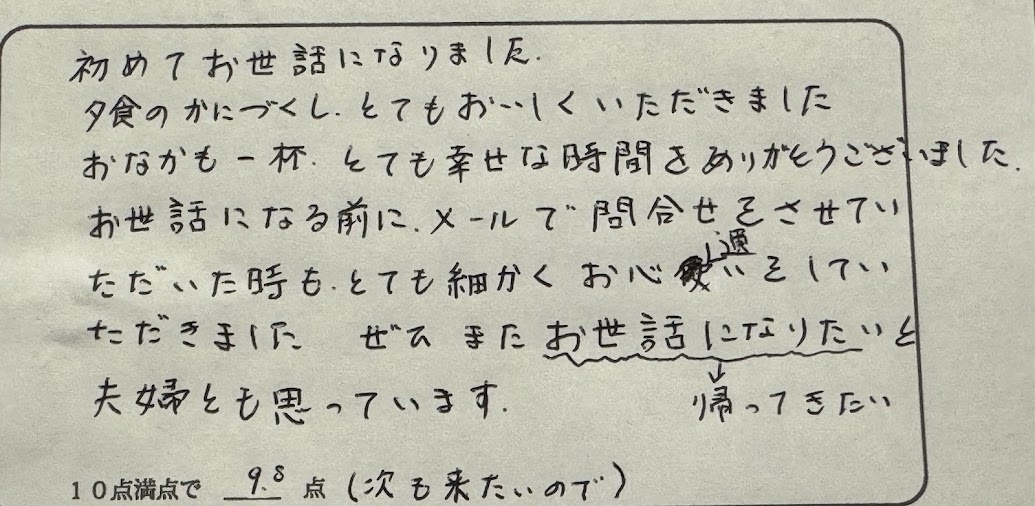 初めてお世話になりました.
夕食のかにづくし.とてもおいしくいただきました
おなかも一杯.とても幸せな時間をありがとうございました.
お世話になる前に.メールで問合せをさせてい
ただいた時も.とても細かくお心遣いをしてい
ただきました ぜひまたお世話になりたいと
↓
夫婦とも思っています. 帰ってきたい
10点満点で 9.8 点 (次も来たいので)